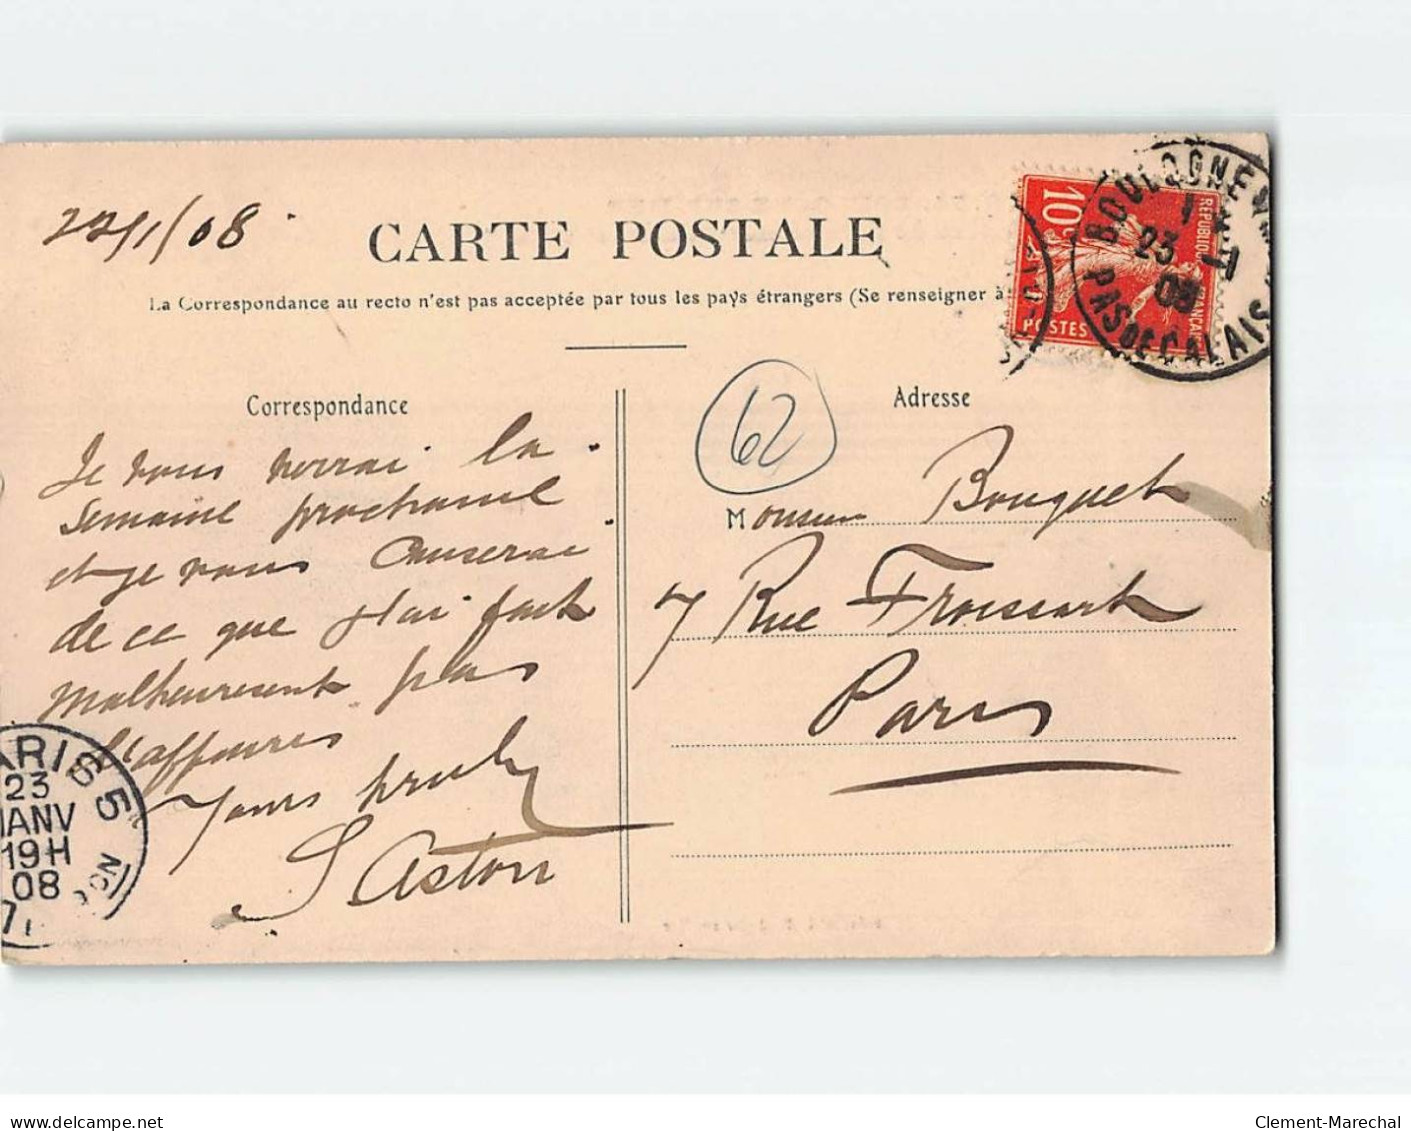 22/1/08
CARTE POSTALE
La Correspondance au recto n'est pas acceptée par tous les pays étrangers (Se renseigner à
Correspondance
Je vous verrai la
semaine prochaine
et je vous causerai
de ce que j'ai fait
malheureusent pas
d'affaires
Yours truly
Gaston
Adresse
62
Monsieur Bouquet
7 Rue Froissart
Paris
10c
REPUBLIQUE FRANÇAISE
POSTES
BOULOGNE S MER
23
08
PAS DE CALAIS
PARIS
23
JANV
19H
08
www.delcampe.net
Clement-Marechal